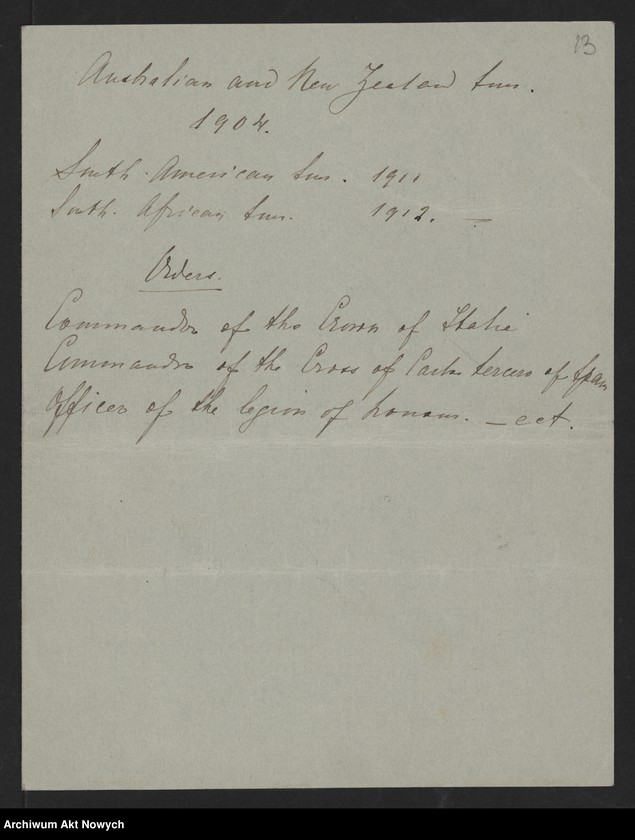 13
Australian and New Zealand tur.
1904.
South. American tur. 1911
South. African tur. 1912. —
Orders.
Commander of the Crown of Italie
Commander of the Cross of Carlos tercero of Spain
Officer of the legion of honour. — ect.
Archiwum Akt Nowych